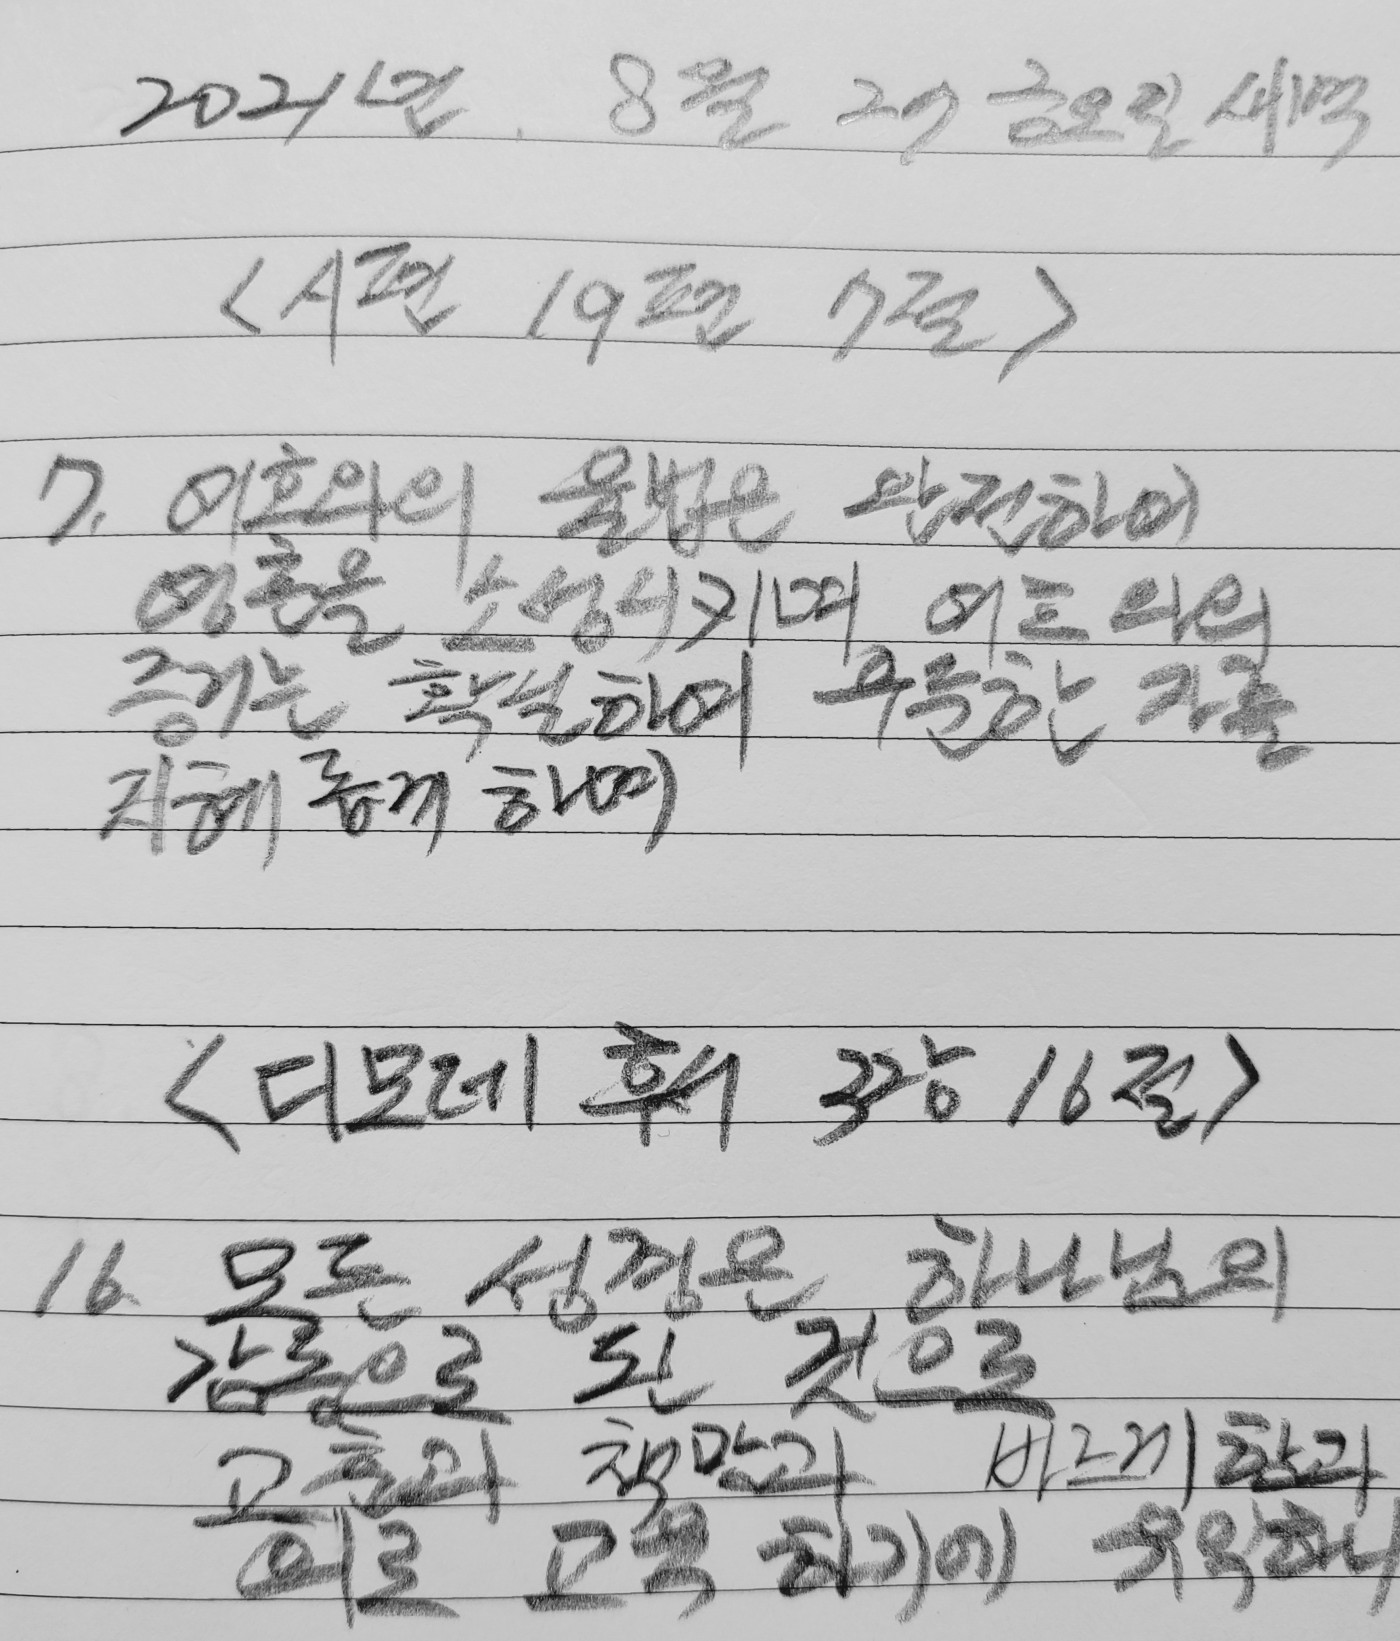 2021년. 8월 27 금요일 새벽
<시편 19편 7절>
7. 여호와의 율법은 완전하여
영혼을 소성시키며 여호와의
증거는 확실하여 우둔한 자를
지혜롭게 하며
<디모데 후서 3장 16절>
16. 모든 성경은 하나님의
감동으로 된 것으로
교훈과 책망과 바르게함과
의로 교육하기에 유익하니